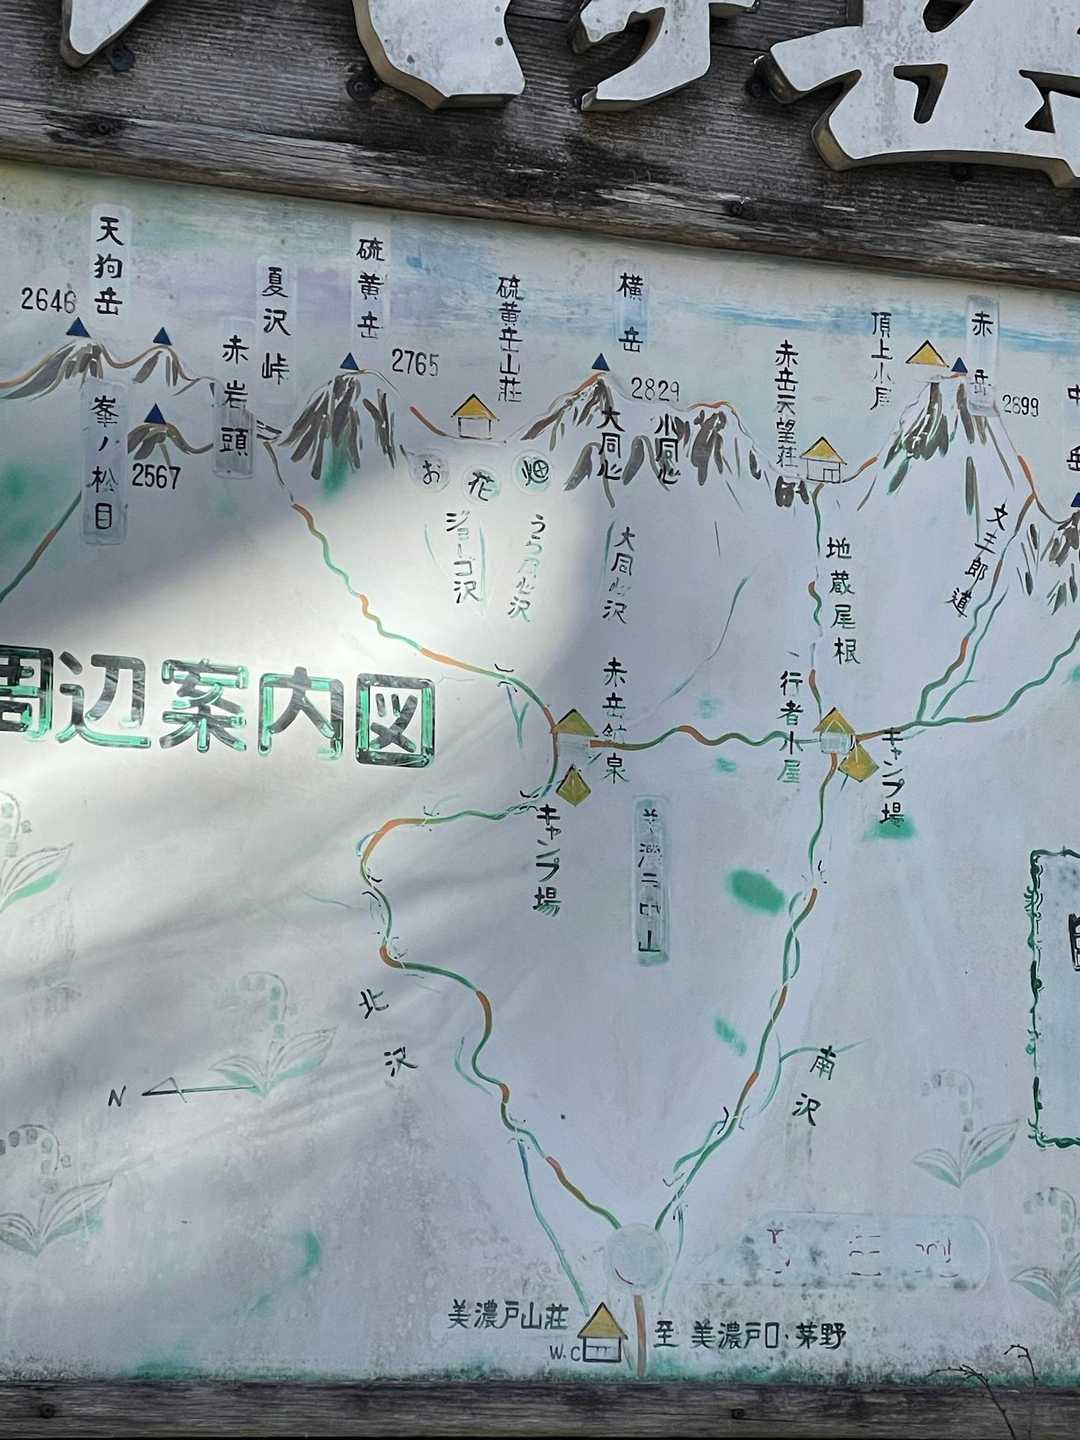 ヶ岳
天狗岳
2646
硫黄岳
2765
夏沢峠
赤岩頭
硫黄岳山荘
横岳
2829
頂上小屋
赤岳
2899
中岳
赤岳天望荘
大同心
小同心
峯ノ松目
2567
お花畑
ジョーゴ沢
大同心沢
地蔵尾根
文三郎道
周辺案内図
赤岳鉱泉
行者小屋
キャンプ場
キャンプ場
美濃戸中山
北沢
南沢
N
美濃戸山荘
W.C
至 美濃戸口・茅野